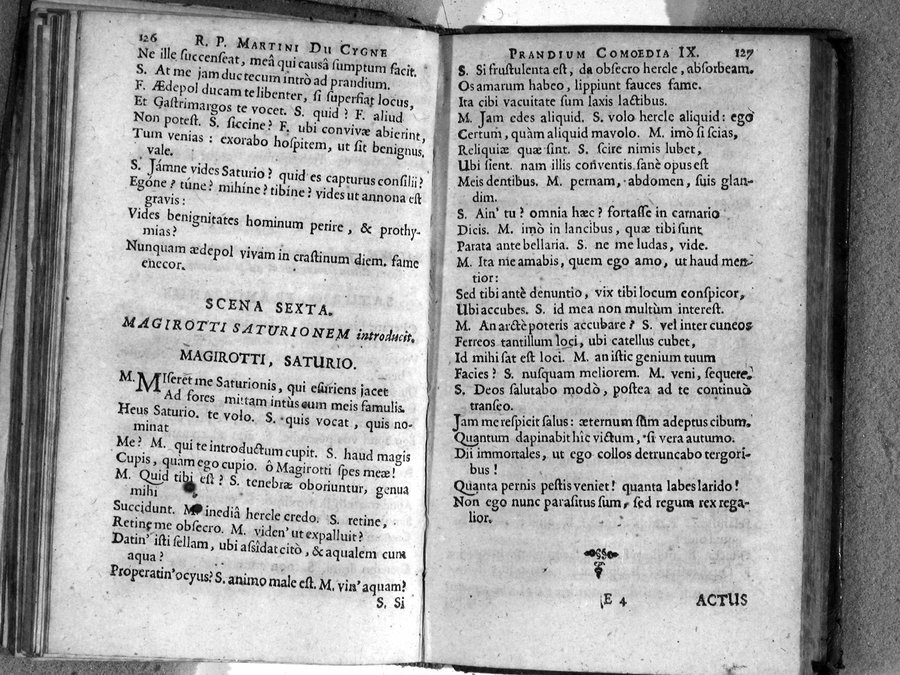 126 R. P. MARTINI DU CYGNE
Ne ille succenseat, meâ qui causâ sumptum facit.
S. At me jam duc tecum intrò ad prandium.
F. Ædepol ducam te libenter, si superfiat locus,
Et Gastrimargos te vocet. S. quid? F. aliud
Non potest. S. siccine? F. ubi convivæ abierint,
Tum venias: exorabo hospitem, ut sit benignus.
vale.
S. Jámne vides Saturio? quid es capturus consilii?
Egóne? túne? mihíne? tibíne? vides ut annona est
gravis:
Vides benignitates hominum perire, & prothy-
mias?
Nunquam ædepol vivam in crastinum diem. fame
enecor.
SCENA SEXTA.
MAGIROTTI SATURIONEM introducit.
MAGIROTTI, SATURIO.
M. MIseret me Saturionis, qui esuriens jacet
Ad fores mittam intùs eum meis famulis.
Heus Saturio. te volo. S. quis vocat, quis no-
minat
Me? M. qui te introductum cupit. S. haud magis
Cupis, quàm ego cupio. ô Magirotti spes meæ!
M. Quid tibi est? S. tenebræ oboriuntur, genua
mihi
Succidunt. M. inediâ hercle credo. S. retine,
Retine me obsecro. M. viden' ut expalluit?
Datin' isti sellam, ubi assidat citò, & aqualem cum
aqua?
Properatin' ocyus? S. animo male est. M. vin' aquam?
S. Si
PRANDIUM COMOEDIA IX. 127
S. Si frustulenta est, da obsecro hercle, absorbeam.
Os amarum habeo, lippiunt fauces fame.
Ita cibi vacuitate sum laxis lactibus.
M. Jam edes aliquid. S. volo hercle aliquid: ego
Certum, quàm aliquid mavolo. M. imò si scias,
Reliquiæ quæ sint. S. scire nimis lubet,
Ubi sient. nam illis conventis sanè opus est
Meis dentibus. M. pernam, abdomen, suis glan-
dim.
S. Ain' tu? omnia hæc? fortasse in carnario
Dicis. M. imò in lancibus, quæ tibi sunt
Parata ante bellaria. S. ne me ludas, vide.
M. Ita me amabis, quem ego amo, ut haud men-
tior:
Sed tibi antè denuntio, vix tibi locum conspicor,
Ubi accubes. S. id mea non multùm interest.
M. An arctè poteris accubare? S. vel inter cuneos
Ferreos tantillum loci, ubi catellus cubet,
Id mihi sat est loci. M. an istic genium tuum
Facies? S. nusquam meliorem. M. veni, sequere.
S. Deos salutabo modò, postea ad te continuò
transeo.
Jam me respicit salus: æternum sum adeptus cibum.
Quantum dapinabit hîc victum, si vera autumo.
Dii immortales, ut ego collos detruncabo tergori-
bus!
Quanta pernis pestis veniet! quanta labes larido!
Non ego nunc parasitus sum, sed regum rex rega-
lior.
E 4 ACTUS